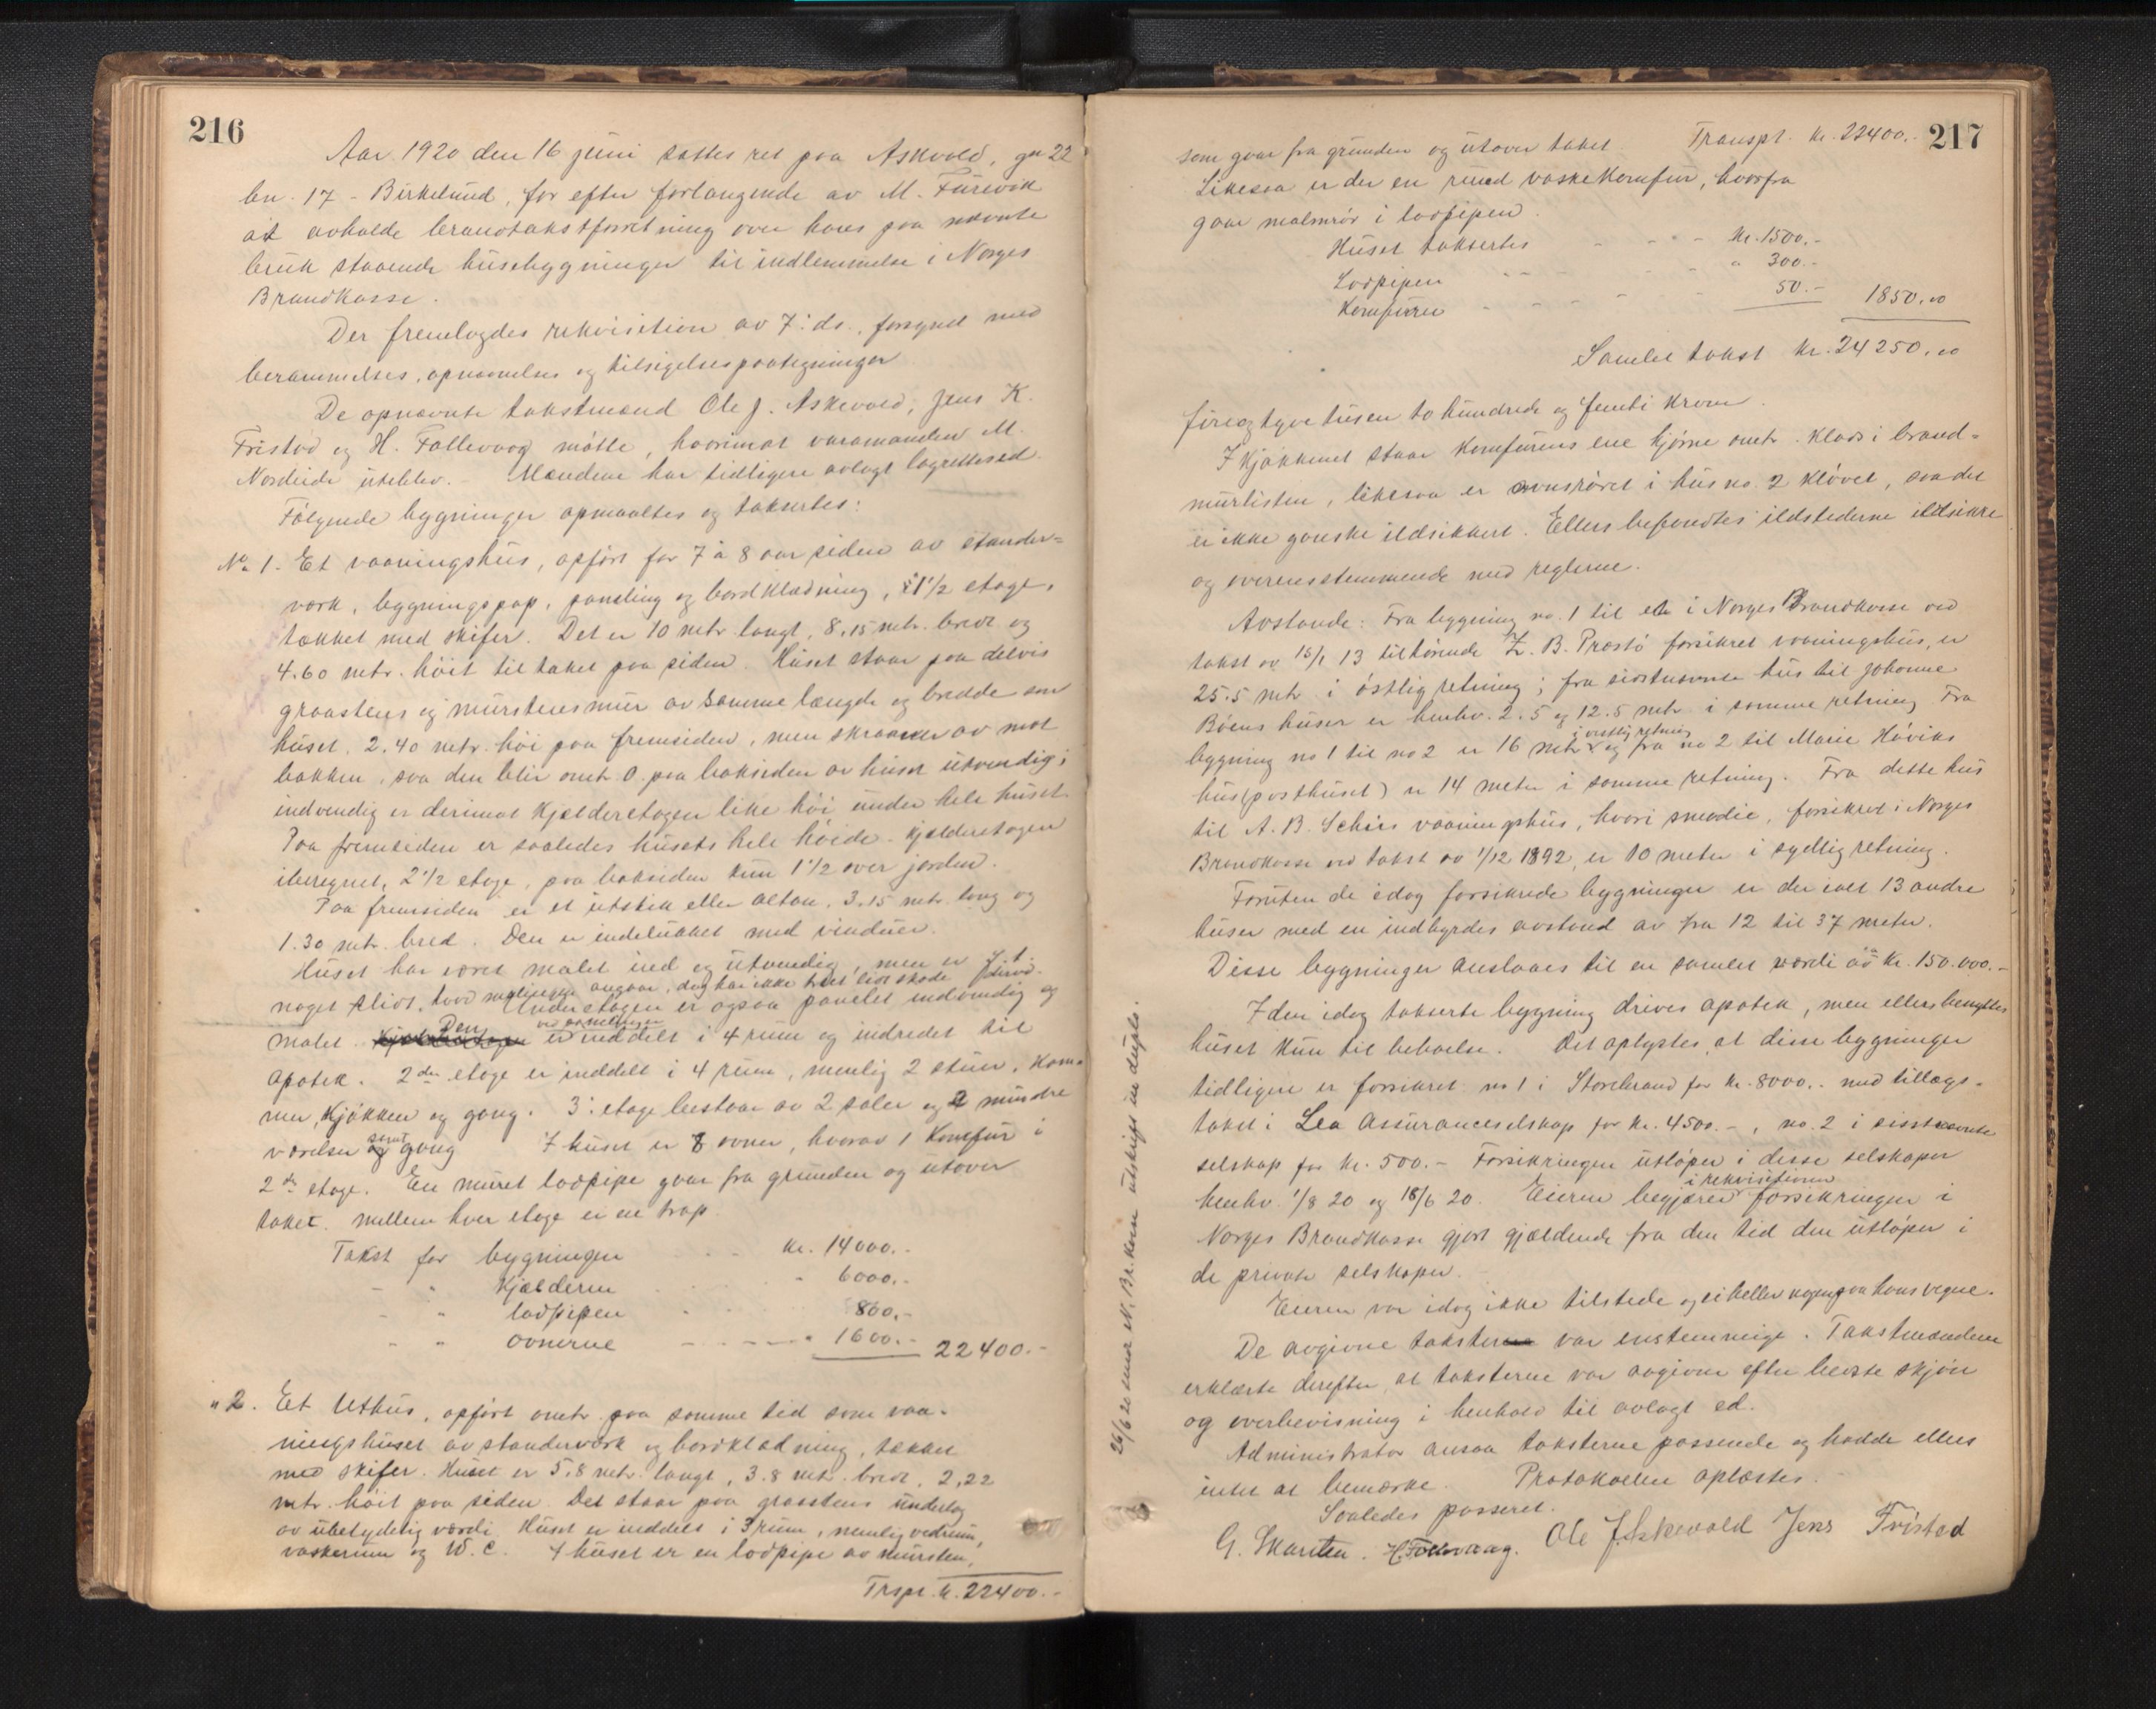 216
Aar 1920 den 16 juni sattes ret paa Askvold, gn 22
bn. 17 - Birkelund, for efter forlangende av M. Furevik
at avholde brandtakstforretning over hans paa nævnte
bruk staaende husebygninger til indlemmelse i Norges
Brandkasse.
Der fremlagdes rekvisition av 7. ds., forsynet med
berammelses, opnævnelses og tilsigelsespaategninger
De opnævnte takstmænd Ole J. Askevold, Jens K.
Fristad og H. Follevaag møtte, hvorimot varamanden M.
Nordeide uteblev. - Mændene har tidligere avlagt lagrettesed.
Følgende bygninger opmaaltes og takseertes:
No 1. Et vaaningshus, opført for 7 à 8 aar siden av stander-
værk, bygningspap, paneling og bordklædning, i 1 1/2 etage,
tækket med skifer. Det er 10 mtr. langt, 8.15 mtr. bredt og
4.60 mtr. høit til taket paa siden. Huset staar paa delvis
graastens og murstensmur av samme længde og bredde som
huset, 2.40 mtr. høi paa fremsiden, men skraaner av mot
bakken, saa den blir omtr. 0 paa baksiden av huset utvendig;
indvendig er derimot kjælderetagen like høi under hele huset
Paa fremsiden er saaledes husets hele høide, kjælderetagen
iberegnet, 2 1/2 etage, paa baksiden kun 1 1/2 over jorden.
Paa fremsiden er et utstik eller altan, 3.15 mtr. lang og
1.30 mtr. bred. Den er indelukket med vinduer.
Huset har været malet ind og utvendig, men er
noget slidt, hvad malingen angaar, dog har ikke huset lidt skade
Underetagen er ogsaa panelet indvendig og
malet. Den er inddelt i 4 rum og indredet til
apotek. 2den etage er inddelt i 4 rum, nemlig 2 stuer, kam-
mer, kjøkken og gang. 3. etage bestaar av 2 saler og 2 mindre
værelser samt gang I huset er 8 ovner, hvorav 1 komfur i
2den etage. En muret lodpipe gaar fra grunden og utover
taket. mellem hver etage er en trap.
Takst for bygningen kr. 14000.-
- " kjælderen " 6000.-
- " lodpipen 800.-
- " ovnerne - - - " 1600.- 22400.-
" 2. Et Uthus, opført omtr. paa samme tid som vaa-
ningshuset av standerværk og bordklædning, tækket
med skifer. Huset er 5.8 mtr. langt, 3.8 mtr. bredt, 2,22
mtr. høit paa siden. Det staar paa graastens underlag
av ubetydelig værdi. Huset er inddelt i 3 rum, nemlig vedrum,
vaskerum og W.C. I huset er en lodpipe av mursten,
Trspt. kr. 22400.-
217
som gaar fra grunden og utover taket. Transpt. kr. 22400.-
Likesaa er der en rund vaskekomfur, hvorfra
gaar malmrør i lodpipen.
Huset takseertes - - - kr. 1500.-
Lodpipen - - - " 300.-
Komfuren - - - 50.- 1850.00
Samlet takst kr. 24250.00
fireogtyve tusen to hundrede og femti kroner.
I kjøkkenet staar komfurens ene hjørne omtr. klods i brand-
murlisten, likesaa er ovnsrøret i hus no. 2 kløvet, saa det
ei ikke ganske ildsikkert. Ellers befandtes ildstederne ildsikre
og overensstemmende med reglerne.
Avstande: Fra bygning no. 1 til et i Norges Brandkasse ved
takst av 15/1 13 tilhørende Z. B. Præstø forsikret vaaningshus, er
25.5 mtr. i østlig retning; fra sidstnævnte hus til Johanne
Bøens huser er henhv. 2.5 og 12.5 mtr. i samme retning Fra
bygning no 1 til no 2 er 16 mtr. i vestlig retning og fra no 2 til Marie Høviks
hus (posthuset) er 14 meter i samme retning. Fra dette hus
til A. B. Schirs vaaningshus, hvori smedie, forsikret i Norges
Brandkasse ved takst av 1/12 1892, er 10 meter i sydlig retning.
Foruten de idag forsikrede bygninger er der ialt 13 andre
huser med en indbyrdes avstand av fra 12 til 37 meter.
Disse bygninger anslaaes til en samlet værdi av kr. 150.000.-
I den idag takserte bygning drives apotek, men ellers benyttes
huset kun til beboelse. Det oplystes, at disse bygninger
tidligere er forsikret no 1 i Storebrand for kr. 8000.- med tillægs-
takst i Lea Assuranceselskap for kr. 4500.-, no. 2 i sisstnævnte
selskap for kr. 500.- Forsikringen utløper i disse selskaper
henhv. 1/8 20 og 18/6 20. Eieren begjærer i rekvisitionen forsikringen i
Norges Brandkasse gjort gjældende fra den tid den utløper i
de private selskaper.
Eieren var idag ikke tilstede og ei heller nogen paa hans vegne.
De avgivne takster var enstemmige. Takstmændene
erklærte derefter, at taksterne var avgivne efter bedste skjøn
og overbevisning i henhold til avlagt ed.
Administrator ansaa taksterne passende og hadde ellers
intet at bemærke. Protokollen oplæstes.
Saaledes passeret.
G. Skarsten. H. Follevaag. Ole J. Askevold Jens Fristad
26/6 20 N. Br.kasse utskrift in duplo.